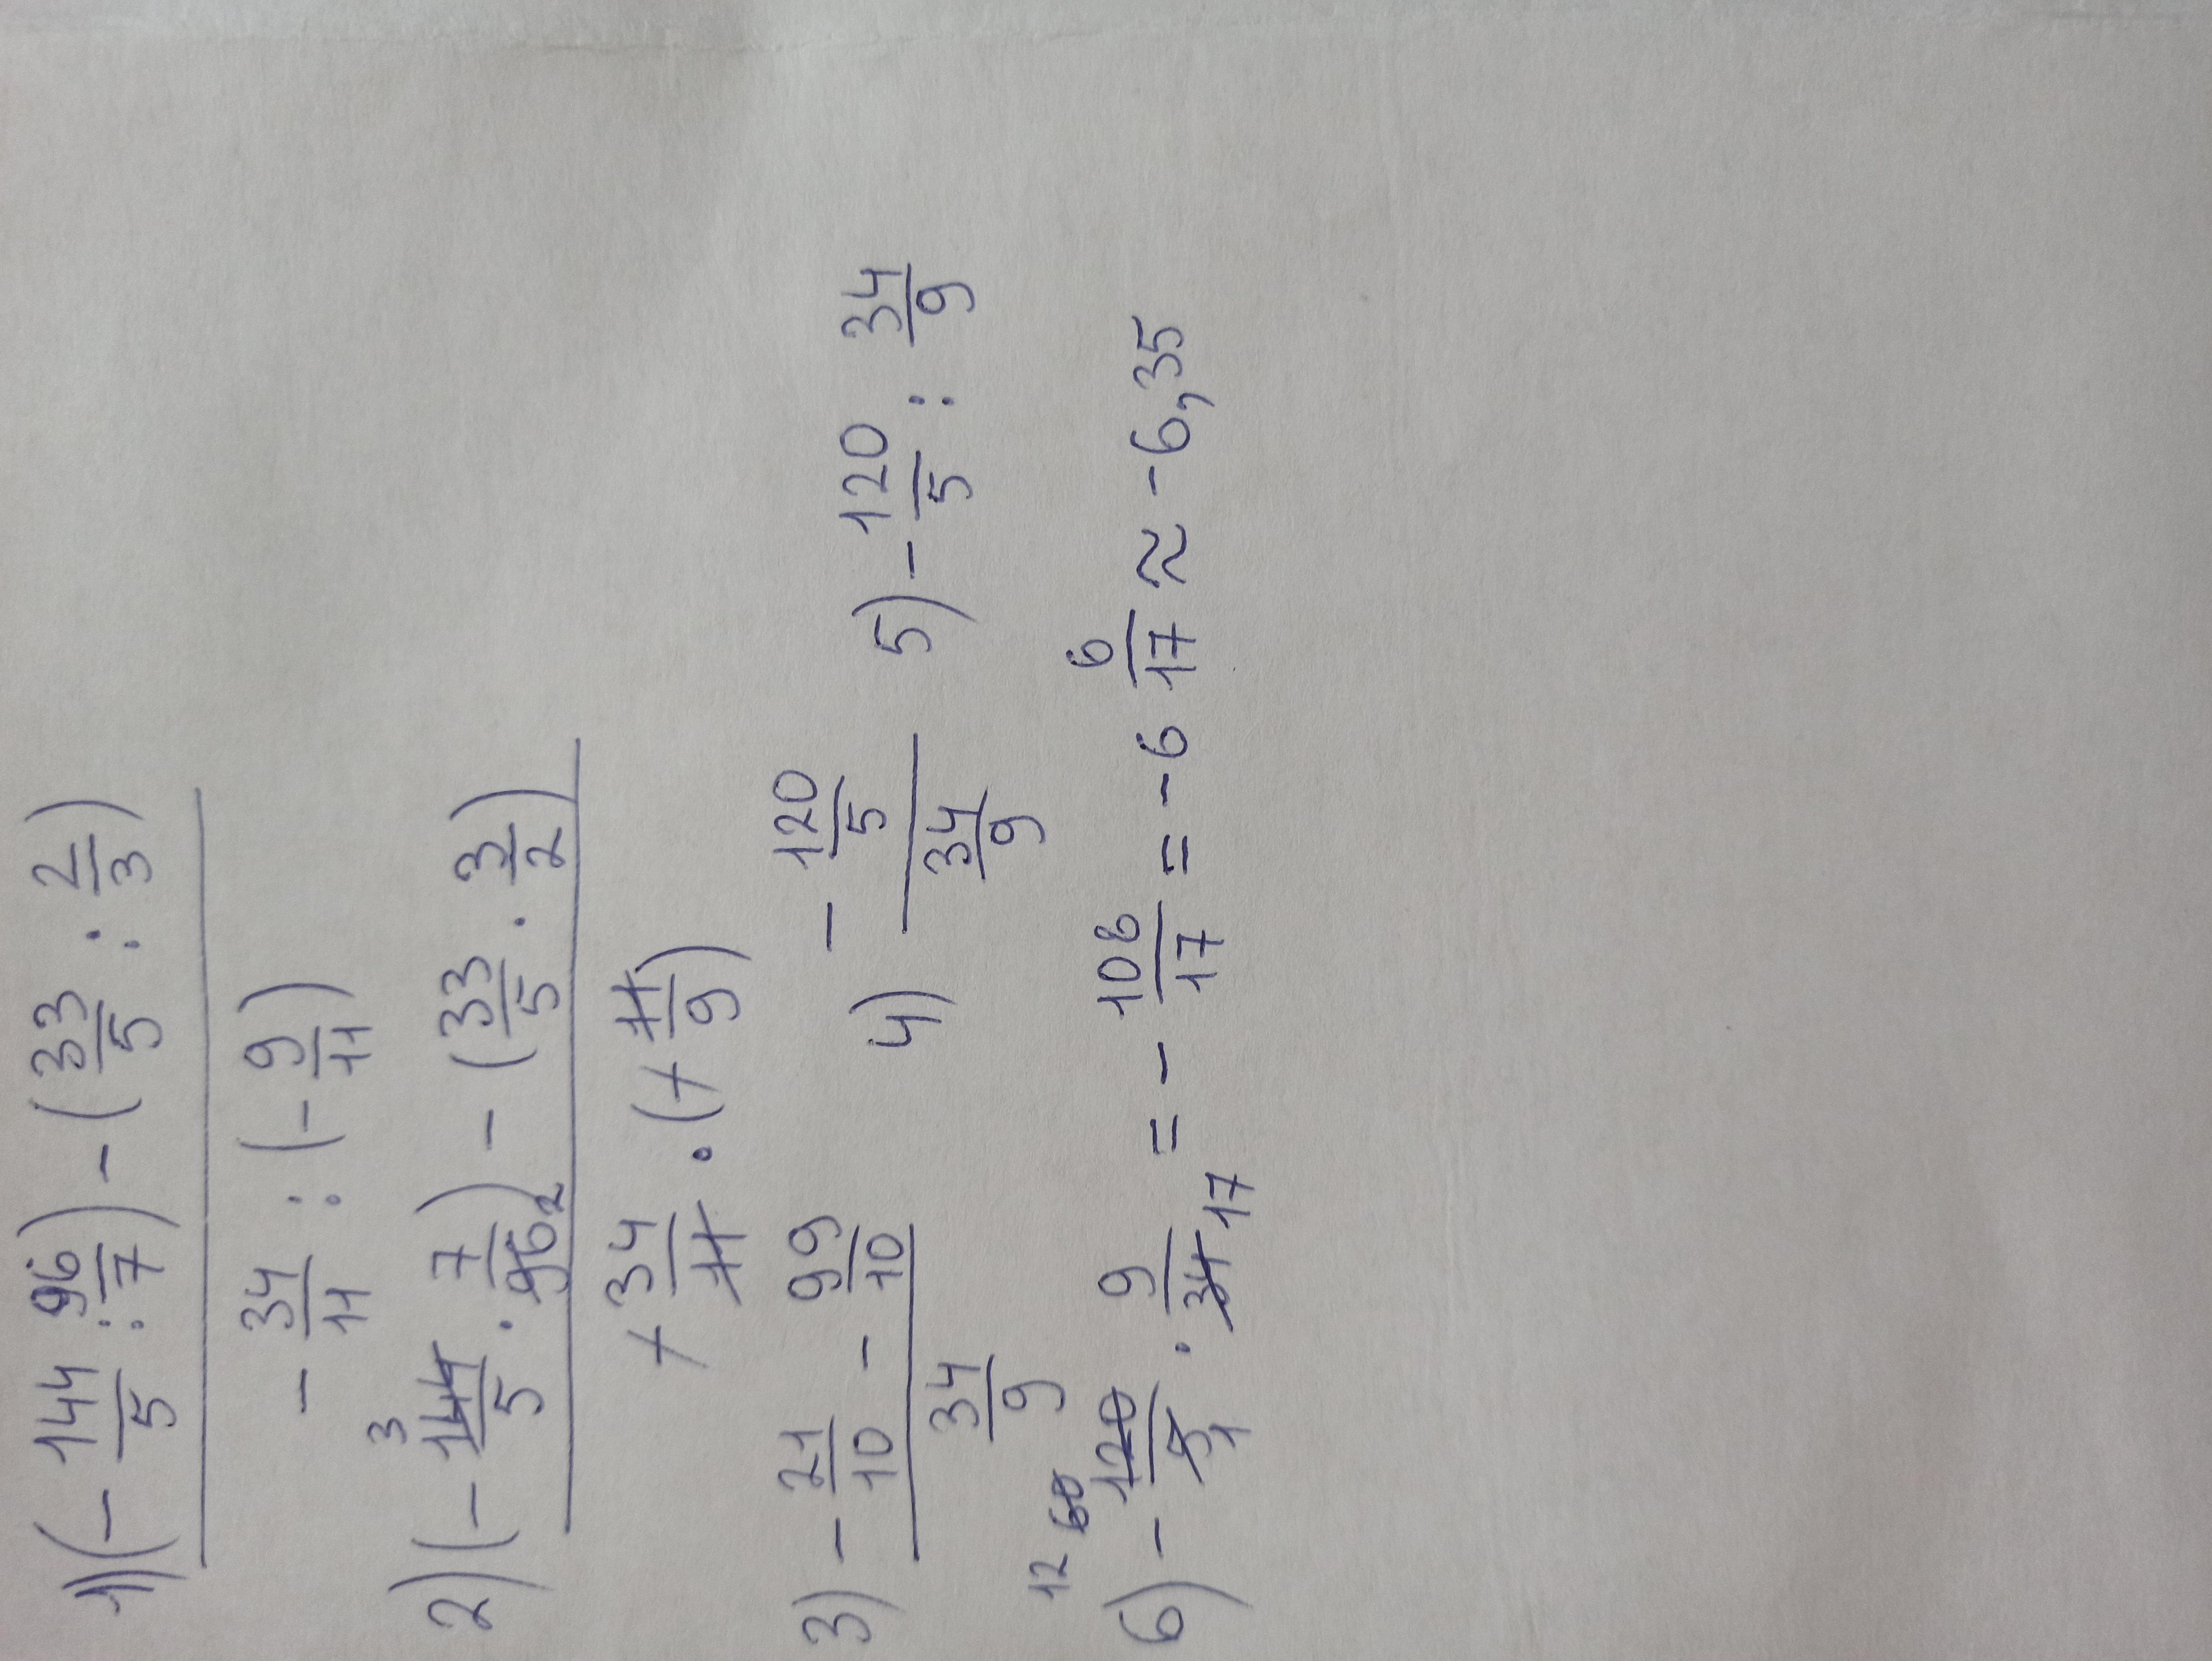 1) (- 144/5 : 96/7) - (33/5 : 2/3)
- 34/11 : (- 9/11)
2) (- 144/5 3 · 7/96 2) - (33/5 · 3/2)
+ 34/11 · (+ 11/9)
3) - 21/10 - 99/10
34/9
4) - 120/5
34/9
5) - 120/5 : 34/9
12 60
6) - 120/5 1 · 9/34 17 = - 108/17 = - 6 6/17 ≈ -6,35